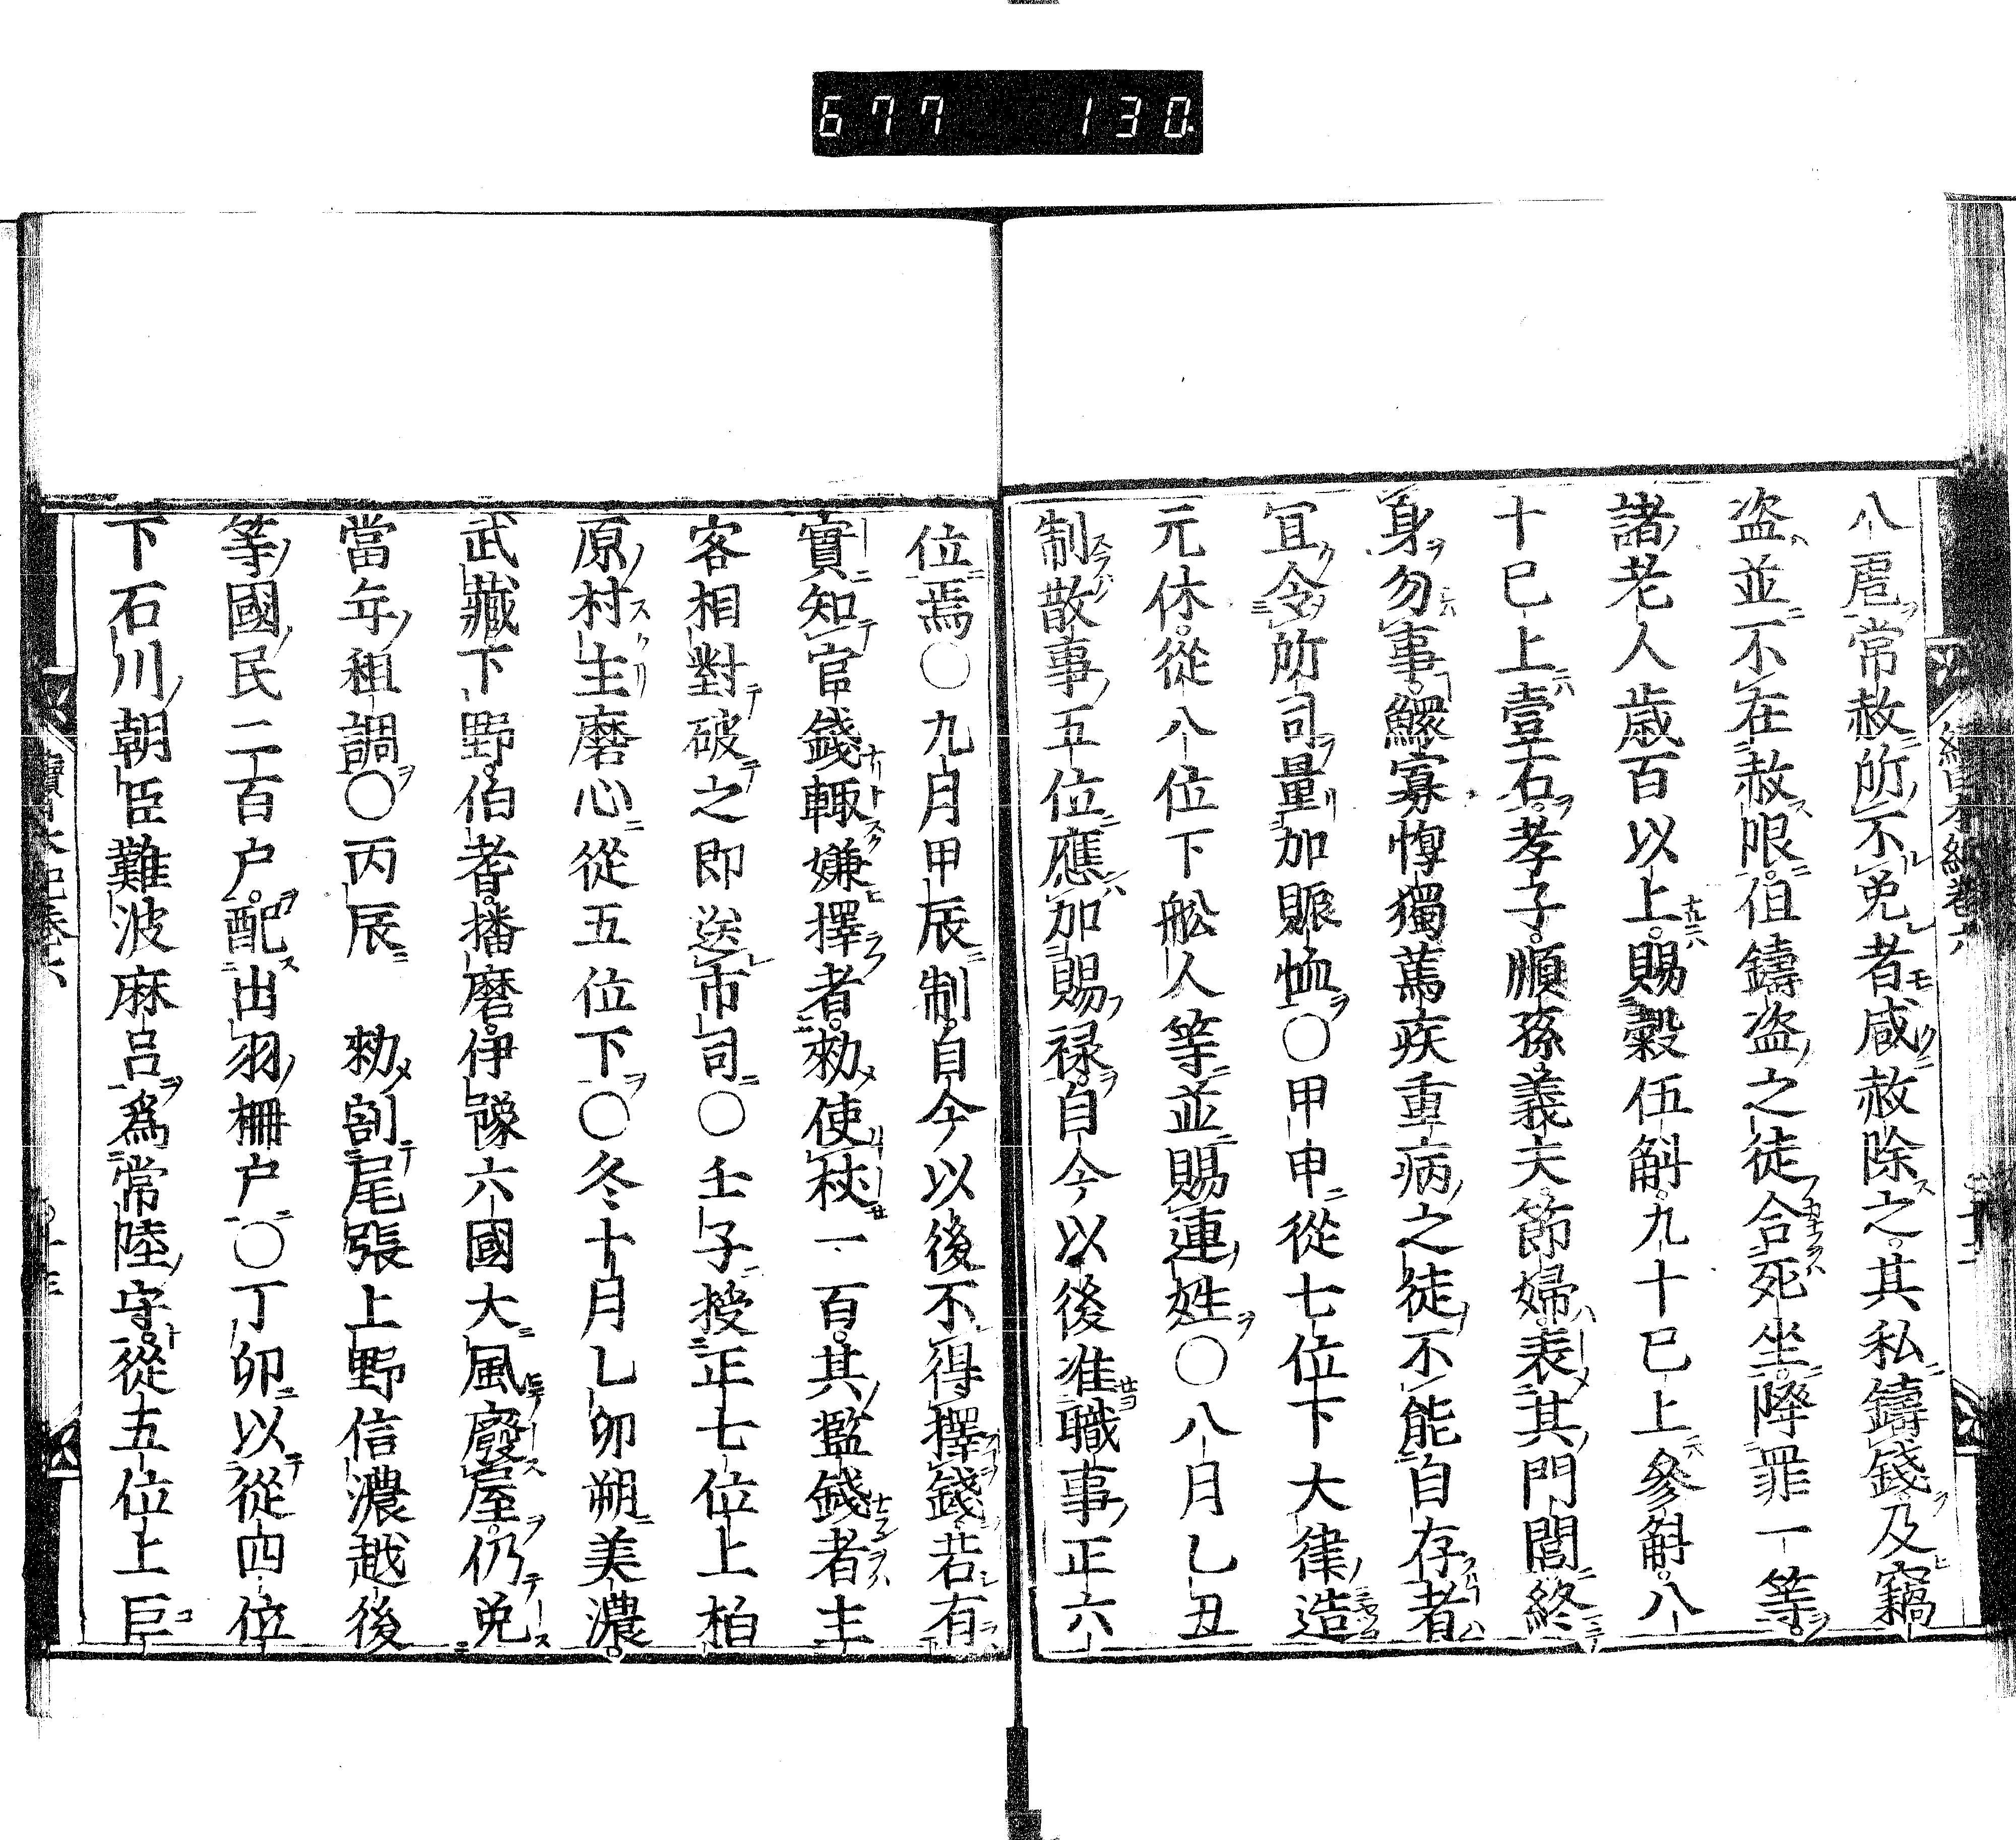 677 130
八虐常赦所不免者咸赦除之其私鑄錢及竊
盗並不在赦限但鑄盗之徒合死坐降罪一等
諸老人歳百以上賜穀伍斛九十巳上參斛八
十巳上壹石孝子順孫義夫節婦表其門閭終
身勿事鰥寡惸獨篤疾重病之徒不能自存者
冝令所司量加賑恤〇甲申從七位下大律造
元休從八位下舩人等並賜連姓〇八月乙丑
制散事五位應加賜禄自今以後准職事正六
位焉〇九月甲辰制自今以後不得擇錢若有
實知官錢輙嫌擇者勑使杖一百其濫錢者主
客相對破之即送市司〇壬子授正七位上柏
原村主磨心從五位下〇冬十月乙卯朔美濃
武藏下野伯耆播磨伊豫六國大風廢屋仍免
當年租調〇丙辰　勑割尾張上野信濃越後
等國民二百户配出羽柵户〇丁卯以從四位
下石川朝臣難波麻呂爲常陸守從五位上巨